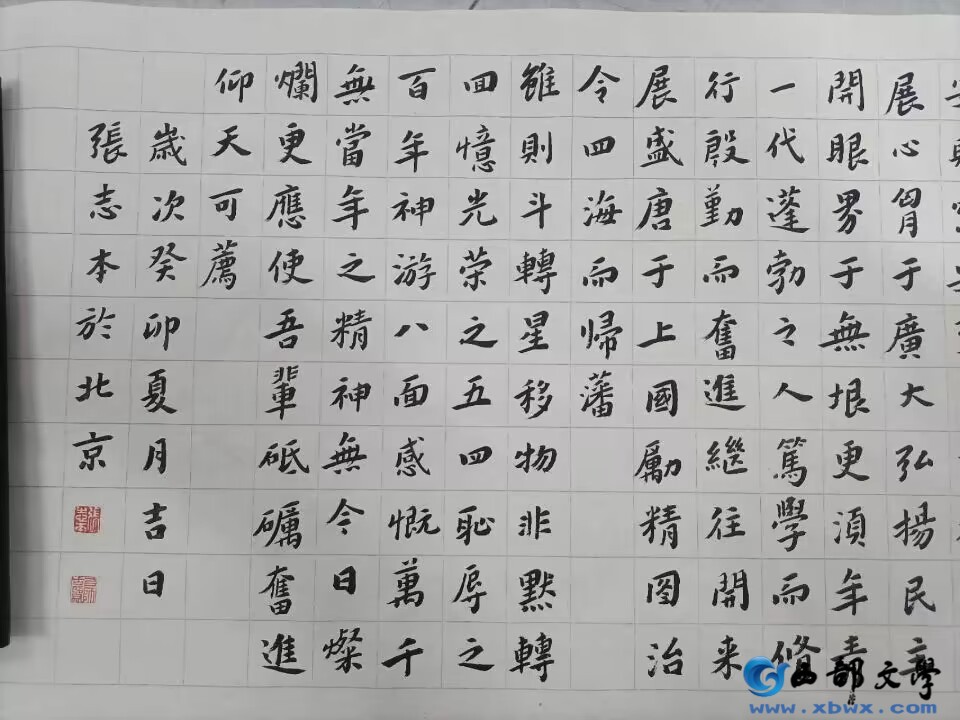 展心胷于廣大弘揚民
開眼界于無垠更須年青
一代蓬勃之人篤學而脩
行殷勤而奮進繼往開来
展盛唐于上國勵精圖治
令四海而歸藩
雖則斗轉星移物非默轉
回憶光荣之五四恥辱之
百年神游八面感慨萬千
無當年之精神無今日燦
爛更應使吾輩砥礪奮進
仰天可薦
歲次癸卯夏月吉日
張志本於北京
西部文學
www.xbwx.com